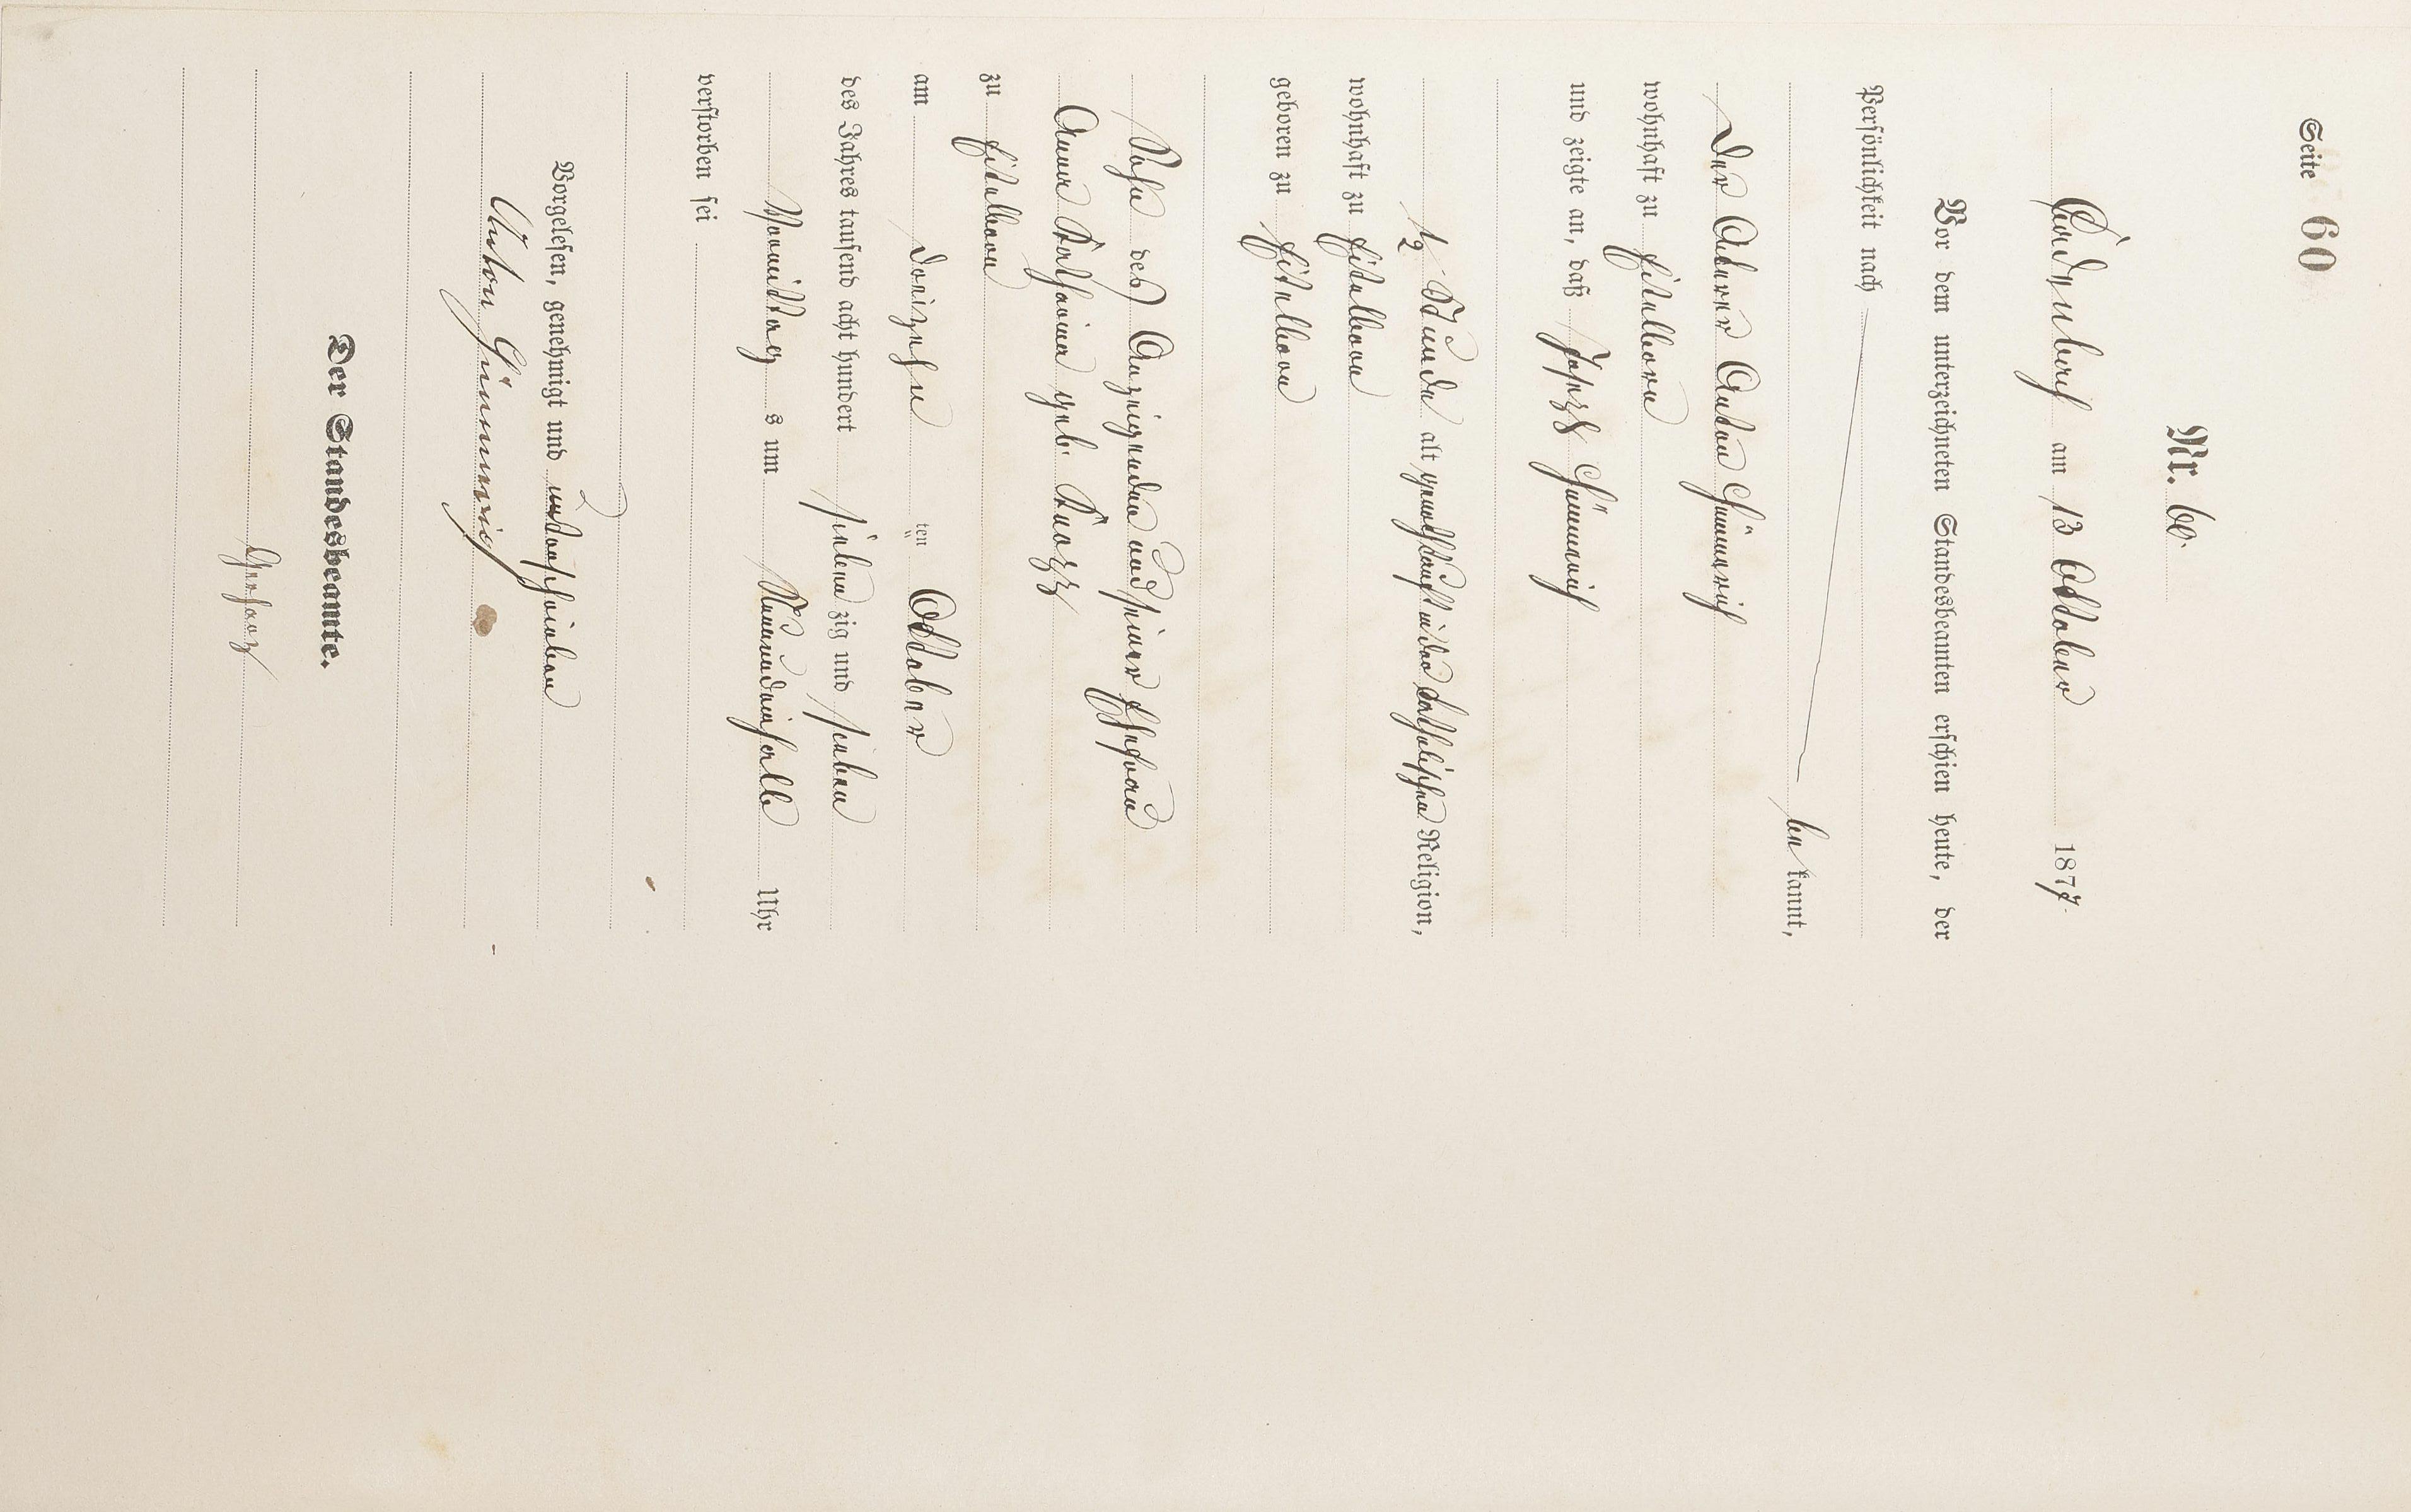 Seite 60
Nr. 60.
Ladenberg am 13 Oktober 1877.
Vor dem unterzeichneten Standesbeamten erschien heute, der
Persönlichkeit nach
be kannt,
der Ackerer Anton Hümmerich
wohnhaft zu Eitelborn
und zeigte an, daß Joseph Hümmerich
1/2 Stunde alt katholischen Religion,
wohnhaft zu Eitelborn
geboren zu Eitelborn
Sohn des Anzeigenden und seiner Ehefrau
Anna Katharina geb. Knopp
zu Eitelborn
am dreizehn ten Oktober
des Jahres tausend acht hundert sieben zig und sieben
Vormittag s um Uhr
verstorben sei
Vorgelesen, genehmigt und unterschrieben
Anton Hümmerig
Der Standesbeamte.